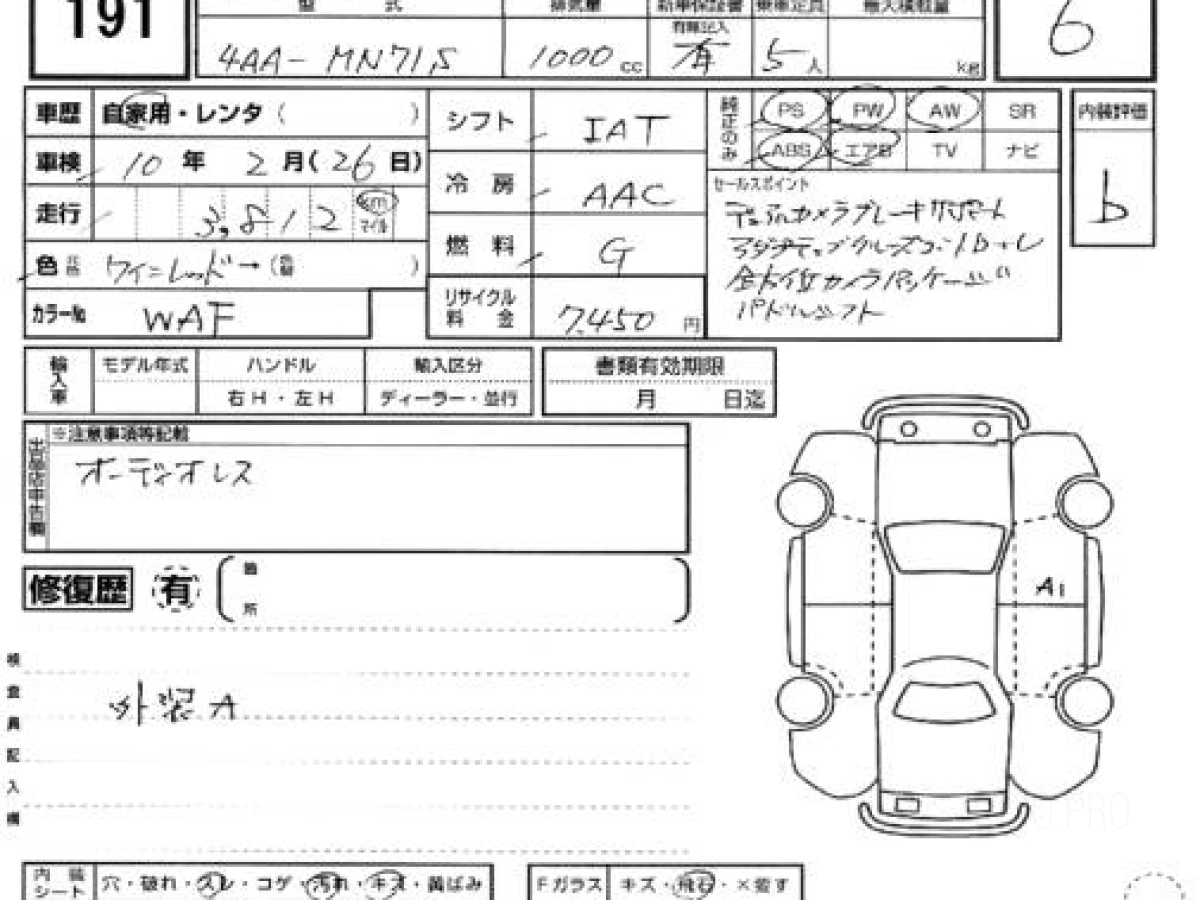 191
型 式 排気量 新車保証書 乗車定員 最大積載量
有無記入
4AA-MN71S 1000cc 有 5人 kg
6
車歴 自家用・レンタ( ) シフト IAT 純正のみ PS PW AW SR 内装評価
ABS エアB TV ナビ
車検 10年 2月(26日) 冷房 AAC b
走行 3,812 km マイル
セールスポイント
デュアルカメラブレーキサポート
アダプティブクルーズコントロール
全方位カメラパッケージ
パドルシフト
燃料 G
色 元色 ワインレッド→(色替 )
カラーNo WAF
リサイクル料金 7,450円
輸入車 モデル年式 ハンドル 輸入区分 書類有効期限
右H・左H ディーラー・並行 月 日迄
出品店申告欄 ※注意事項等記載
オーディオレス
修復歴 有 箇所
A1
検査員記入欄
外装A
内装シート 穴・破れ・スレ・コゲ・汚れ・キズ・黄ばみ Fガラス キズ・飛石・×要す